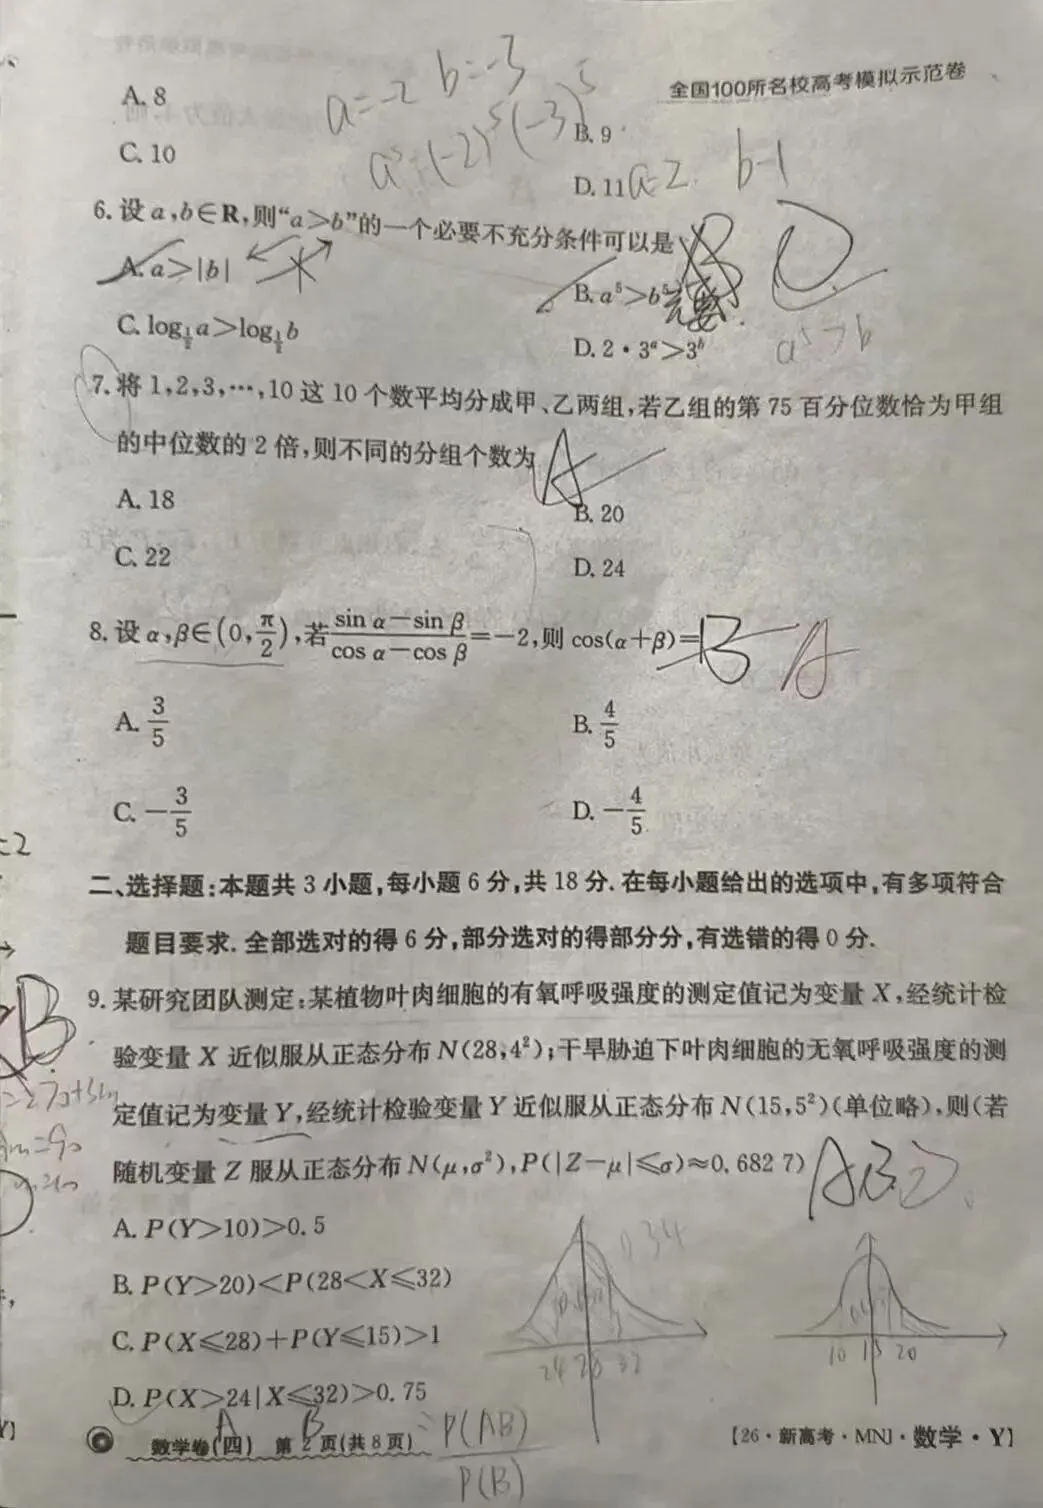 全国100所名校高考模拟示范卷
a=-2 b=-3
A. 8
B. 9
a⁵=(-2)⁵(-3)⁵
C. 10
D. 11
a=2. b-1
6. 设 a,b∈R,则“a>b”的一个必要不充分条件可以是
B
A. a>|b|
B. a⁵>b⁵
C. log_{1/2}a>log_{1/2}b
D. 2·3ᵃ>3ᵇ
a⁵>b
7. 将 1,2,3,…,10 这 10 个数平均分成甲、乙两组,若乙组的第 75 百分位数恰为甲组
的中位数的 2 倍,则不同的分组个数为
A
A. 18
B. 20
C. 22
D. 24
8. 设 α,β∈(0,π/2),若(sin α-sin β)/(cos α-cos β)=-2,则 cos(α+β)=
B A
A. 3/5
B. 4/5
C. -3/5
D. -4/5
二、选择题:本题共 3 小题,每小题 6 分,共 18 分. 在每小题给出的选项中,有多项符合
题目要求. 全部选对的得 6 分,部分选对的得部分分,有选错的得 0 分.
B
9. 某研究团队测定:某植物叶肉细胞的有氧呼吸强度的测定值记为变量 X,经统计检
验变量 X 近似服从正态分布 N(28,4²);干旱胁迫下叶肉细胞的无氧呼吸强度的测
定值记为变量 Y,经统计检验变量 Y 近似服从正态分布 N(15,5²)(单位略),则(若
随机变量 Z 服从正态分布 N(μ,σ²),P(|Z-μ|≤σ)≈0.682 7)
AB
A. P(Y>10)>0.5
0.34
B. P(Y>20)<P(28<X≤32)
C. P(X≤28)+P(Y≤15)>1
24 28 32
10 15 20
D. P(X>24|X≤32)>0.75
A B =P(AB)
P(B)
数学卷(四) 第 2 页(共 8 页)
【26·新高考·MNJ·数学·Y】